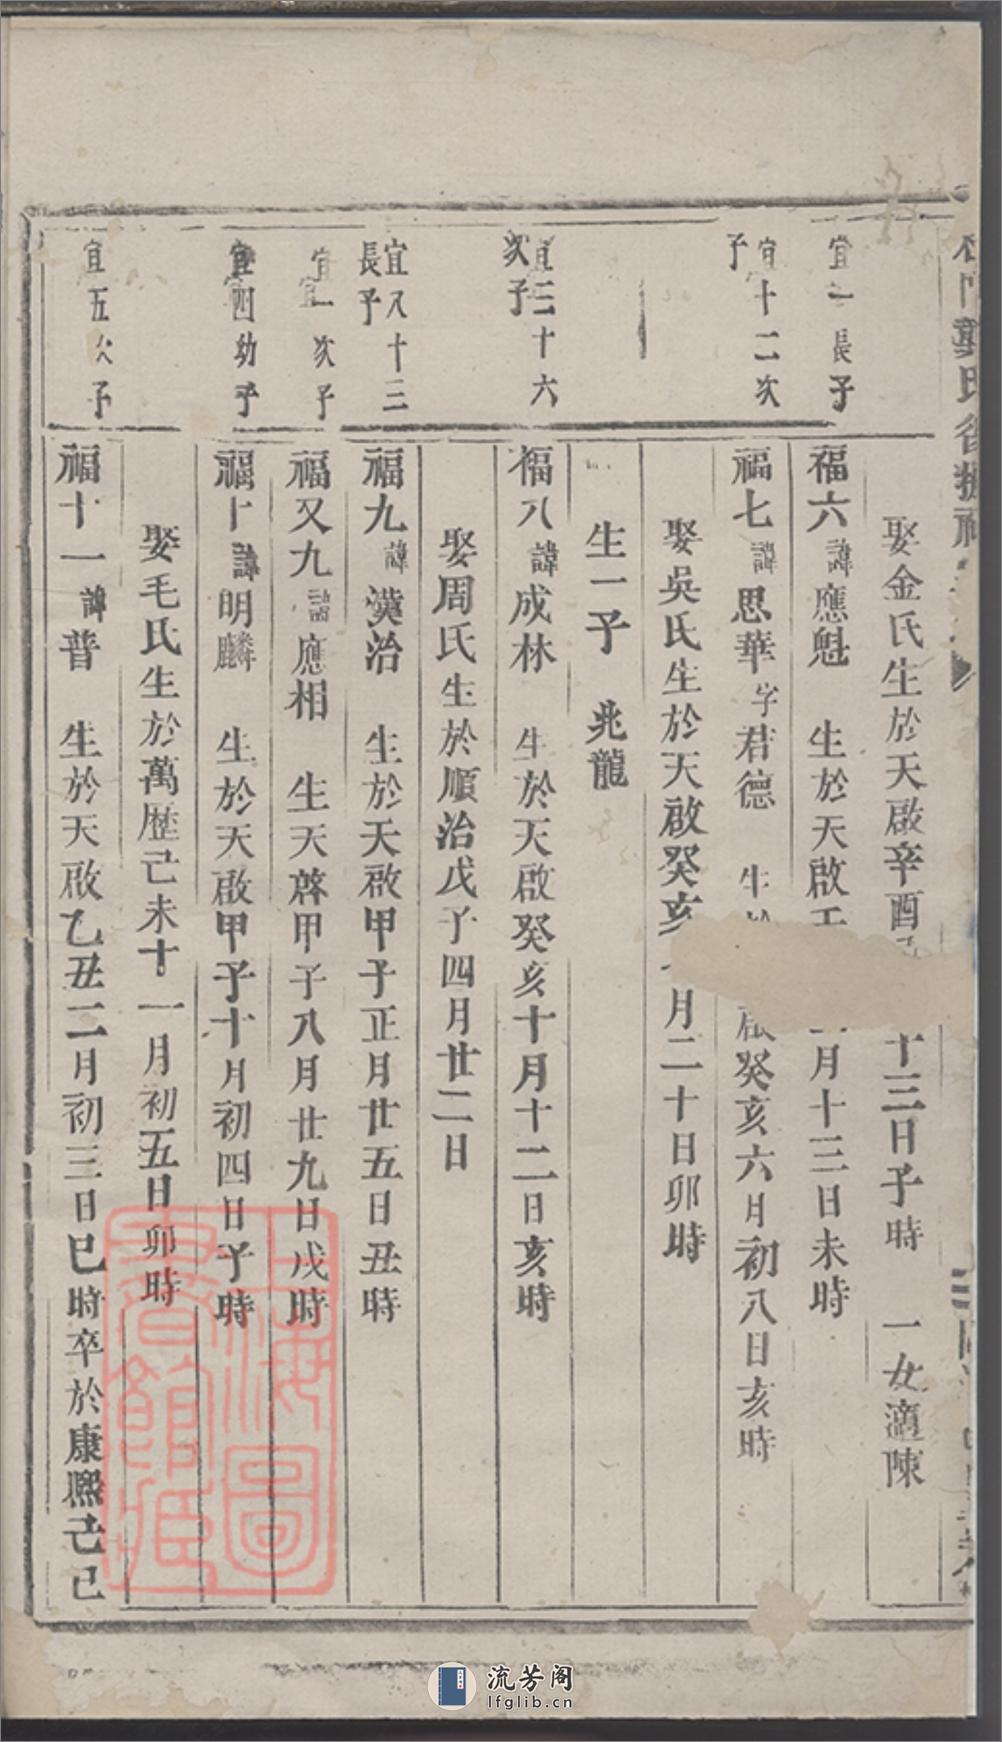 娶金氏生於天啟辛酉 十三日子時 一女適陳
宜一長子
福六諱應魁 生於天啟 月十三日未時
宜十二次子
福七諱思華字君德 生 啟癸亥六月初八日亥時
娶吳氏生於天啟癸亥 月二十日卯時
生一子 兆龍
宜三十六次子
福八諱成林 生於天啟癸亥十月十二日亥時
娶周氏生於順治戊子四月廿二日
宜又十三長子
福九諱漢治 生於天啟甲子正月廿五日丑時
宜一次子
福又九諱應相 生天啓甲子八月廿九日戌時
宜四幼子
福十諱明麟 生於天啟甲子十月初四日子時
娶毛氏生於萬歷己未十一月初五日卯時
宜五次子
福十一諱普 生於天啟乙丑二月初三日巳時卒於康熙己巳
上海圖書館藏
流芳阁
lfglib.cn